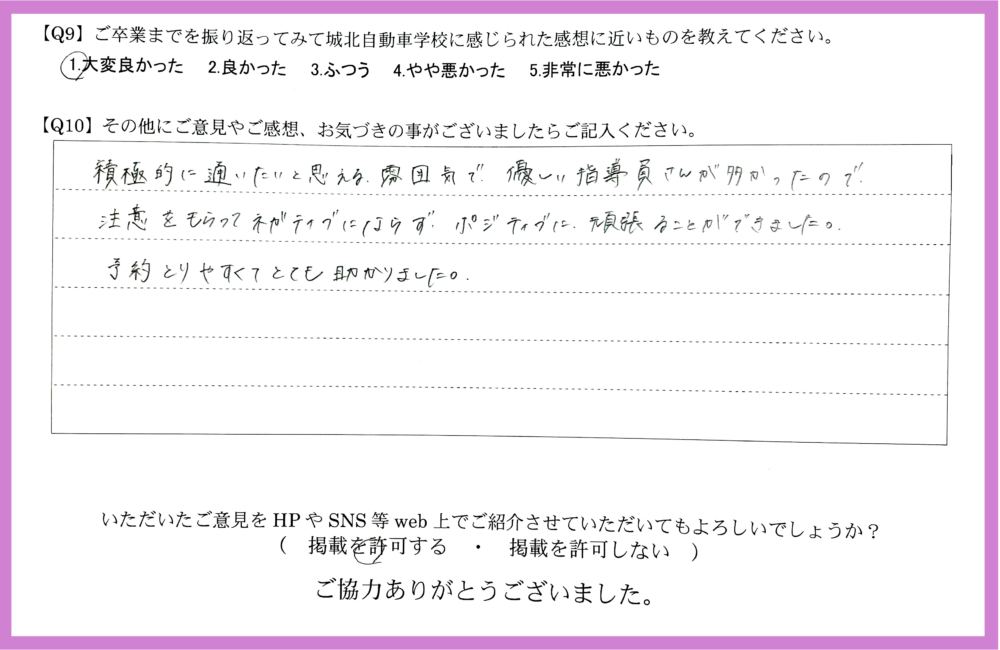 【Q9】ご卒業までを振り返ってみて城北自動車学校に感じられた感想に近いものを教えてください。
1.大変良かった 2.良かった 3.ふつう 4.やや悪かった 5.非常に悪かった
【Q10】その他にご意見やご感想、お気づきの事がございましたらご記入ください。
積極的に通いたいと思える、雰囲気で、優しい指導員さんが多かったので、
注意をもらってネガティブにならず、ポジティブに、頑張ることができました。
予約とりやすくてとても助かりました。
いただいたご意見をHPやSNS等web上でご紹介させていただいてもよろしいでしょうか？
( 掲載を許可する ・ 掲載を許可しない )
ご協力ありがとうございました。